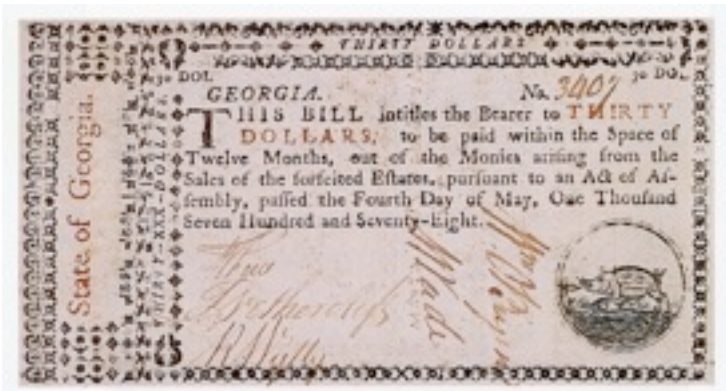 THIRTY DOLLARS
30 DOL. 30 DO.
GEORGIA. No. 3407
THIS BILL intitles the Bearer to THIRTY
DOLLARS, to be paid within the Space of
Twelve Months, out of the Monies arising from the
Sales of the forfeited Eſtates, purſuant to an Act of Aſ-
ſembly, paſſed the Fourth Day of May, One Thouſand
Seven Hundred and Seventy-Eight.
State of Georgia.
THIRTY-XXX-DOLLARS
Wade